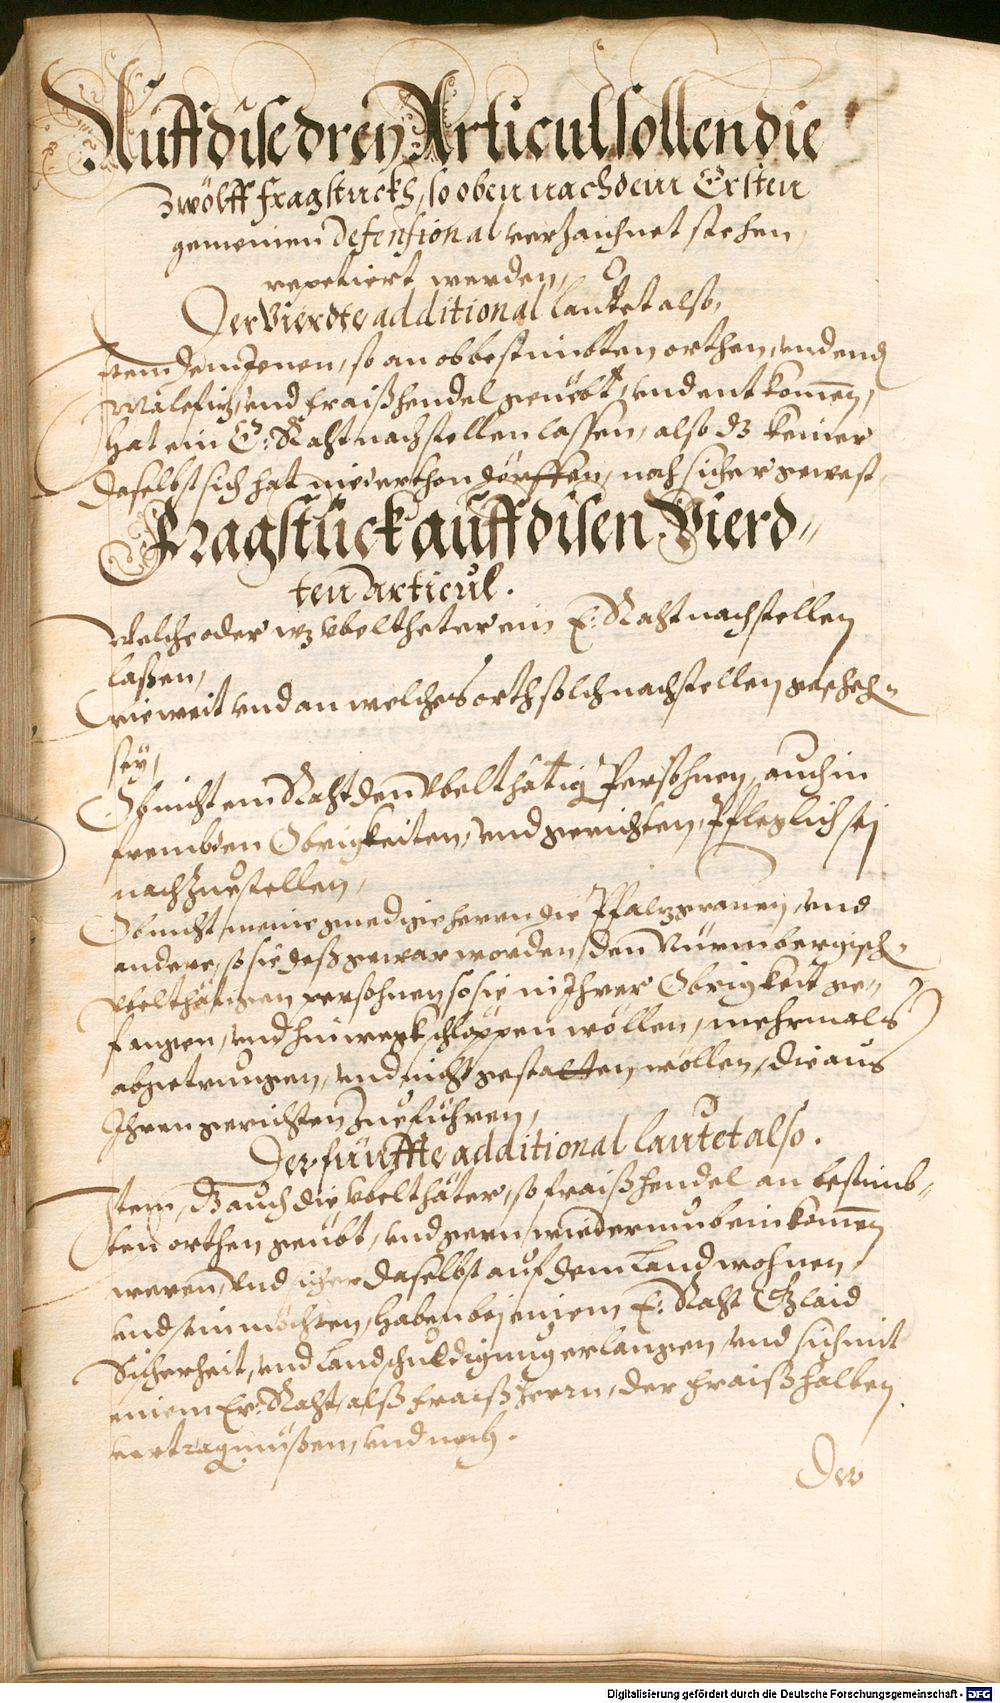 Auff dise dreÿ Articul sollen die
zwölff fragstuckh, so oben nach dem Ersten
gemeinen Defensional verzaichnet stehen,
repetiert werden,
Der Vierdte additional lautet also,
Item denn Jenen, so an obbestimbten orthen, und end
Malefitz, und fraißhendel geuebt, und entkomen,
hat ein E: Raht nachstellen lassen, also dz keiner
daselbst sich hat niderthon dörffen, noch sicher gewest,
Fragstück auff disen Vierd-
ten Articul.
Welche oder wz übeltheter ein E: Raht nachstellen
laßen,
Wie weit und an welches orth solch nachstellen gescheh-
seÿ,
Ob nicht ein Raht den Übelthätig Persohnen, auch in
frembden Obrigkeiten, und gerichten, Pfleglich sej
nachzustellen,
Ob nicht meine gnedige herrn die Pfaltzgraven, und
andere, so sie deß gewar worden, den Nürmbergisch-
übelthätigen persohnen so sie in Ihrer Obrigkeit ge-
fangen, und hinwegk schleppen wöllen, mehrmals
abgetrungen, und nicht gestatten wöllen, die aus
Ihren gerichten zuführen,
Der fünffte additional lautet also.
Item, dz auch die übelthäter, so fraißhendel an bestimb-
ten orthen geübt, und gern wiederumb einkomen
weren, und sicher daselbst auf dem Land wohnen
und sein möchten, haben bej einem E: Raht Glaid
Sicherheit, und Landshuldigung erlangen, und sich mit
einem Er: Raht, alß fraißherrn, der fraiß halben
vertrag müßen, und noch.
Der
Digitalisierung gefördert durch die Deutsche Forschungsgemeinschaft - DFG